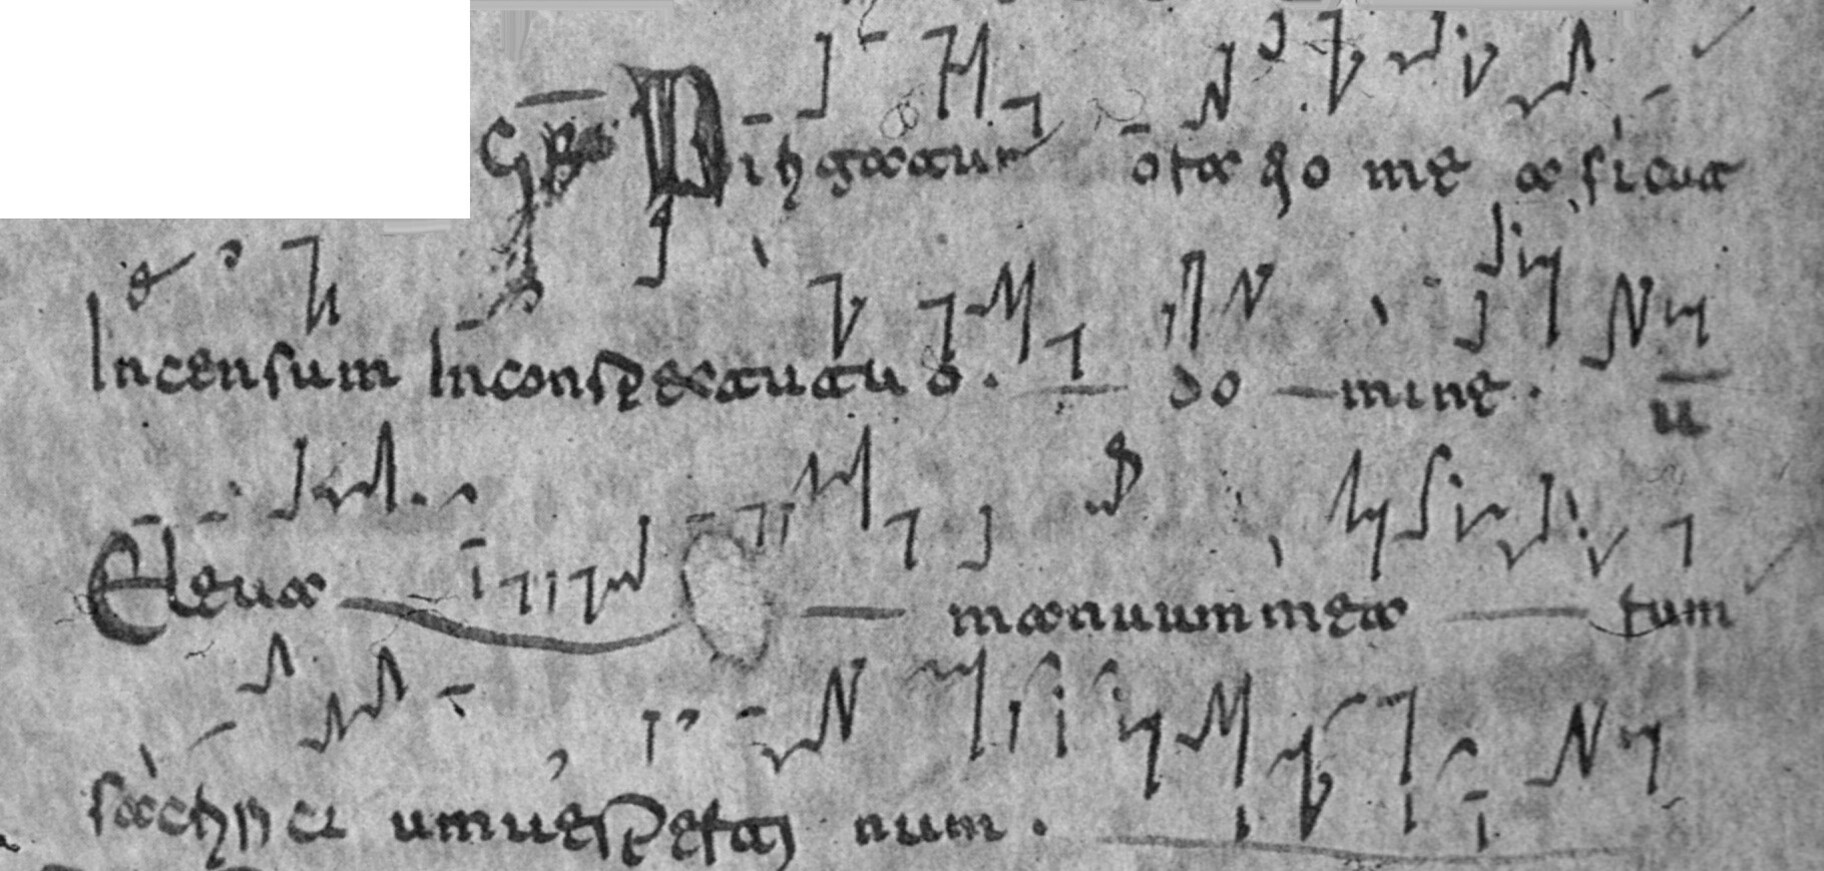 GR Dirigatur oratio mea sicut
Incensum Inconspectu tuo. do mine. V
Eleua manuum mea rum
sacrifici um uespertinum.